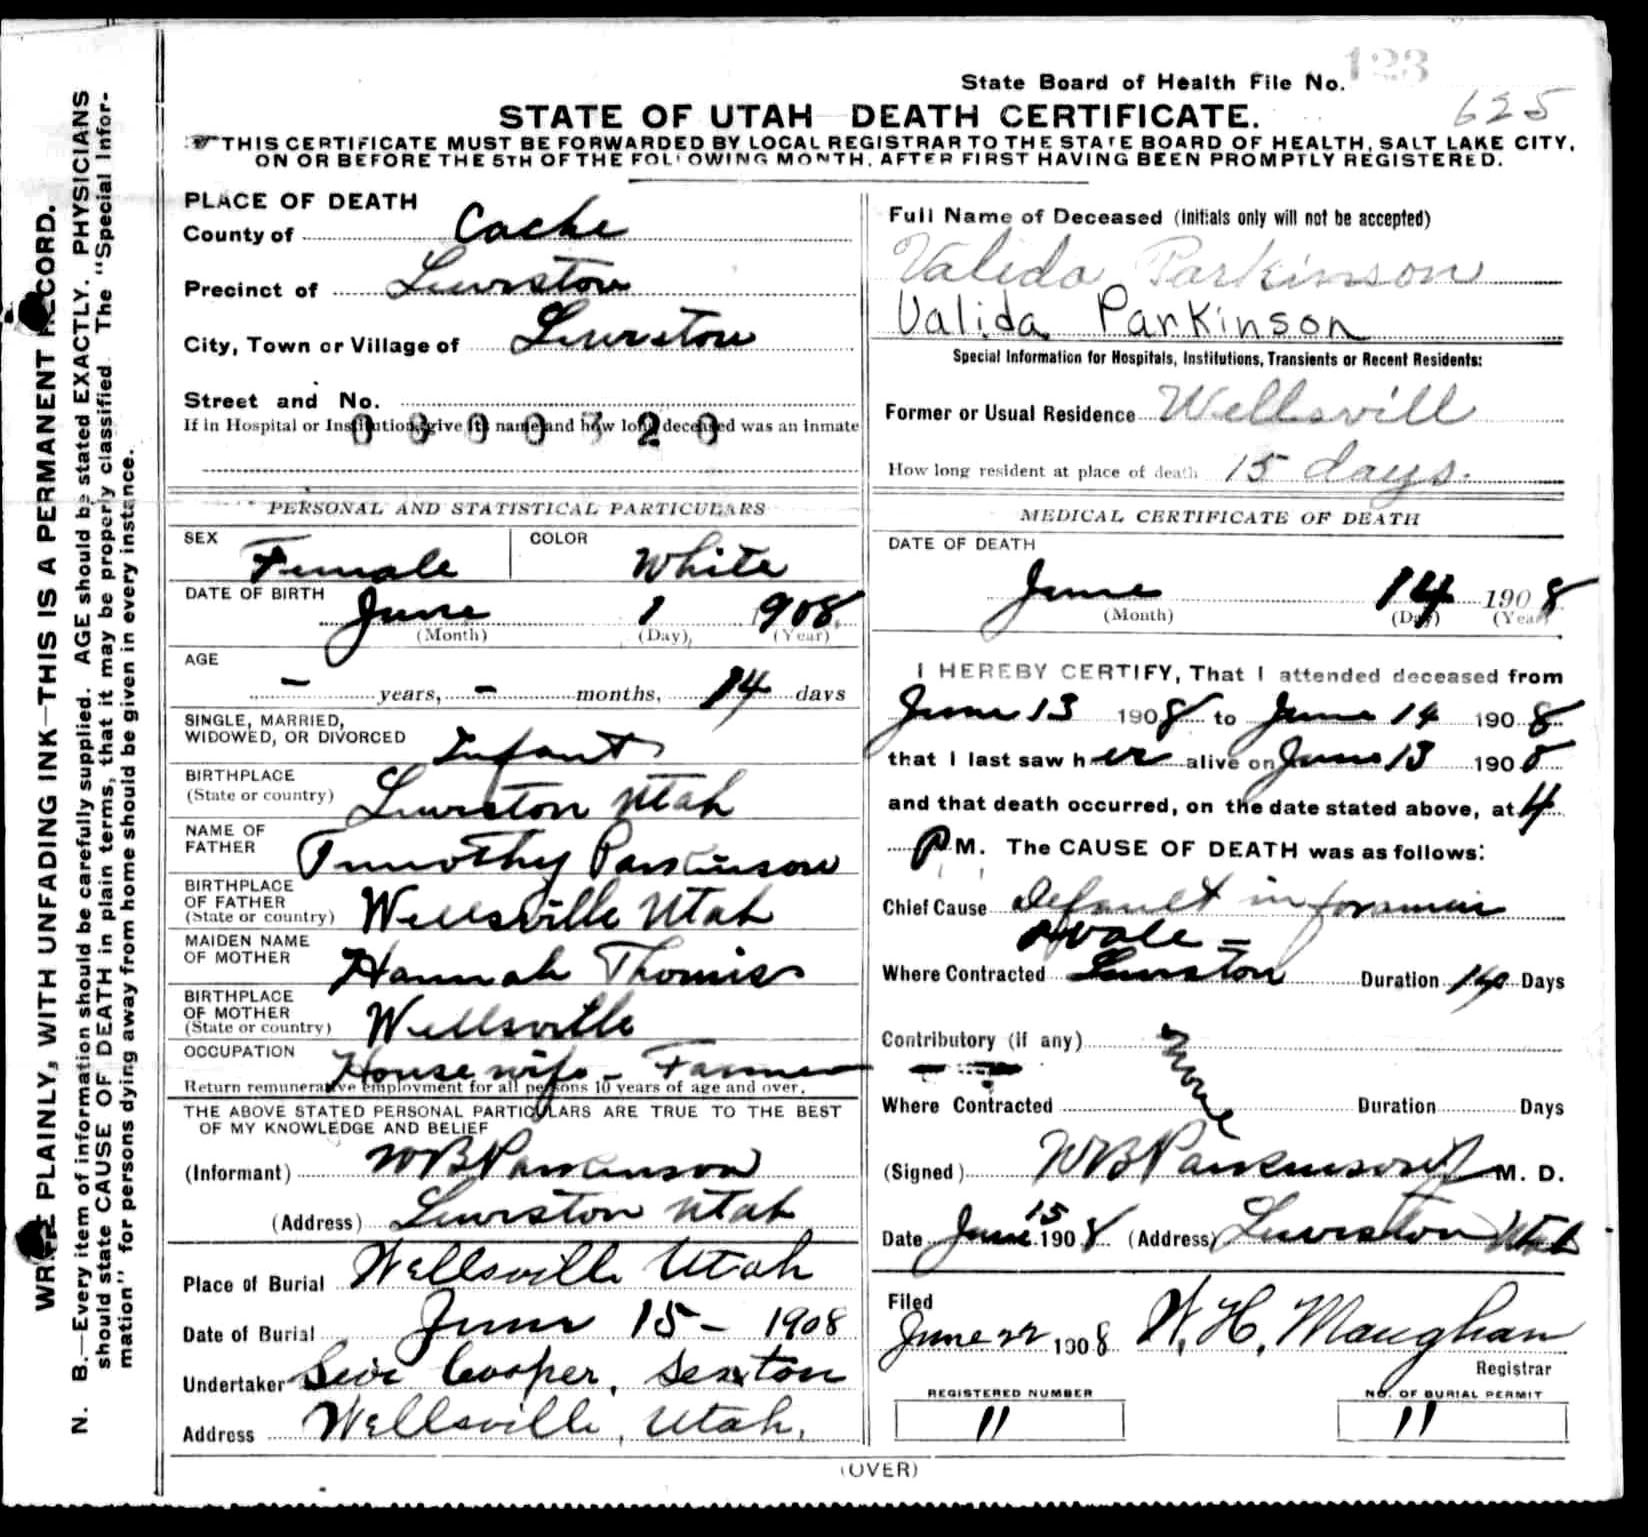 State Board of Health File No. 123
625
STATE OF UTAH DEATH CERTIFICATE.
THIS CERTIFICATE MUST BE FORWARDED BY LOCAL REGISTRAR TO THE STATE BOARD OF HEALTH, SALT LAKE CITY,
ON OR BEFORE THE 5TH OF THE FOLLOWING MONTH, AFTER FIRST HAVING BEEN PROMPTLY REGISTERED.
WRITE PLAINLY, WITH UNFADING INK—THIS IS A PERMANENT RECORD.
N. B.—Every item of information should be carefully supplied. AGE should be stated EXACTLY. PHYSICIANS
should state CAUSE OF DEATH in plain terms, that it may be properly classified. The "Special Infor-
mation" for persons dying away from home should be given in every instance.
PLACE OF DEATH
County of Cache
Precinct of Lewiston
City, Town or Village of Lewiston
Street and No.
If in Hospital or Institution, give its name and how long deceased was an inmate
PERSONAL AND STATISTICAL PARTICULARS
SEX Female COLOR White
DATE OF BIRTH June 1 1908
(Month) (Day) (Year)
AGE
– years, – months, 14 days
SINGLE, MARRIED,
WIDOWED, OR DIVORCED Infant
BIRTHPLACE
(State or country) Lewiston Utah
NAME OF
FATHER Timothy Parkinson
BIRTHPLACE
OF FATHER
(State or country) Wellsville Utah
MAIDEN NAME
OF MOTHER Hannah Thomas
BIRTHPLACE
OF MOTHER
(State or country) Wellsville
OCCUPATION House wife – Farmer
Return remunerative employment for all persons 10 years of age and over.
THE ABOVE STATED PERSONAL PARTICULARS ARE TRUE TO THE BEST
OF MY KNOWLEDGE AND BELIEF
(Informant) W B Parkinson
(Address) Lewiston Utah
Place of Burial Wellsville Utah
Date of Burial June 15 – 1908
Undertaker Cooper, Sexton
Address Wellsville, Utah.
Full Name of Deceased (Initials only will not be accepted)
Valida Parkinson
Valida Parkinson
Special Information for Hospitals, Institutions, Transients or Recent Residents:
Former or Usual Residence Wellsvill
How long resident at place of death 15 days.
MEDICAL CERTIFICATE OF DEATH
DATE OF DEATH
June 14 1908
(Month) (Day) (Year)
I HEREBY CERTIFY, That I attended deceased from
June 13 1908 to June 14 1908
that I last saw her alive on June 13 1908
and that death occurred, on the date stated above, at 4
P M. The CAUSE OF DEATH was as follows:
Chief Cause Default in foramin
Ovale =
Where Contracted Lewiston Duration 14 Days
Contributory (if any) None
Where Contracted Duration Days
(Signed) W B Parkinson M. D.
Date June 15 1908 (Address) Lewiston Utah
Filed
June 22 1908 W. H. Maughan
Registrar
REGISTERED NUMBER
11
NO. OF BURIAL PERMIT
11
(OVER)